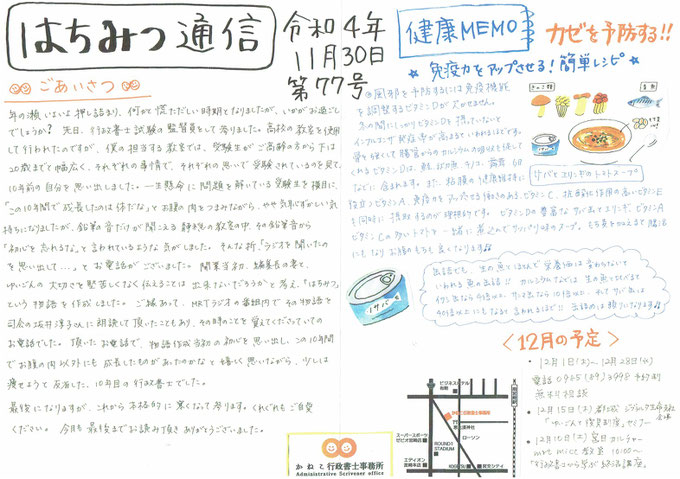 はちみつ通信
令和4年
11月30日
第77号
ごあいさつ
年の瀬いよいよ押し詰まり、何かと慌ただしい時期となりましたが、いかがお過ごし
でしょうか? 先日、行政書士試験の監督員をして参りました。高校の教室を使用
して行われたのですが、僕の担当する教室では、受験生がご高齢の方から下は
20歳までと幅広く、それぞれの事情で、それぞれの思いで受験されているのを見て、
10年前の自分を思い出しました。一生懸命に問題を解いている受験生を横目に、
「この10年間で成長したのは体だな」とお腹の肉をつまみながら、やや気恥ずかしい気
持ちになりましたが、鉛筆の音だけが聞こえる静寂の教室の中、その鉛筆音から
「初心を忘れるな」と言われているような気がしました。そんな折、「ラジオを聞いたの
を思い出して…」とお電話がございました。開業当初、編集長の妻と、
ゆいごんの大切さを堅苦しくなく伝えることは出来ないだろうかと考え、「はちみつ」
という物語を作成しました。ご縁あって、MRTラジオの番組内でその物語を
司会の坂井淳子さんに朗読して頂いたこともあり、その時のことを覚えてくださっていての
お電話でした。頂いたお電話で、物語作成当初の初心を思い出し、この10年間
でお腹の肉以外にも成長したものがあったのかなと嬉しく思いながら、少しは
痩せようと反省した、10年目の行政書士でした。
最後になりますが、これから本格的に寒くなって参ります。くれぐれもご自愛
ください。今月も最後までお読み頂きありがとうございました。
健康MEMO
カゼを予防する!!
☆ 免疫力をアップさせる!簡単レシピ ☆
風邪を予防するには免疫機能
を調整するビタミンDが欠かせません。
冬の間にしっかりビタミンDを摂っていないと
インフルエンザ発症率が高まるといわれるほどです。
骨を強くして腸管からのカルシウムの吸収を促して
くれるビタミンDは、鮭、サバ、魚、キノコ、
などに含まれます。また、粘膜の健康維持に
役立つビタミンA、免疫力をアップさせる働きのあるビタミンC、抗酸化作用の高いビタミンE
も同時に摂取するのが理想的です。ビタミンDの豊富なサバ缶でエリンギ、ビタミンA
ビタミンCの多いトマトと一緒に煮込んでサババリのスープ。
にもなりお腹の
きのこ類
青魚
サバとエリンギのトマトスープ
サバ
缶詰でも、生の魚とほとんど栄養価は変わらないと
いわれる魚の缶詰!!
<12月の予定>
・12月1日(土)~12月28日(水)
電話0985(89)3998予約制
無料相談
・12月15日(木)
「ゆいごんで復興制度」セミナー
・12月10日(土) 宮日カルチャー
mrt micc教室 10:00~
「行政書士から学ぶ終活講座」
かねこ行政書士事務所
Administrative Scrivener office
ビジネスホテル
かねこ行政書士事務所
ローソン
スーパースポーツ
ゼビオ宮崎店
ROUND1
STADIUM
エディオン
宮崎本店